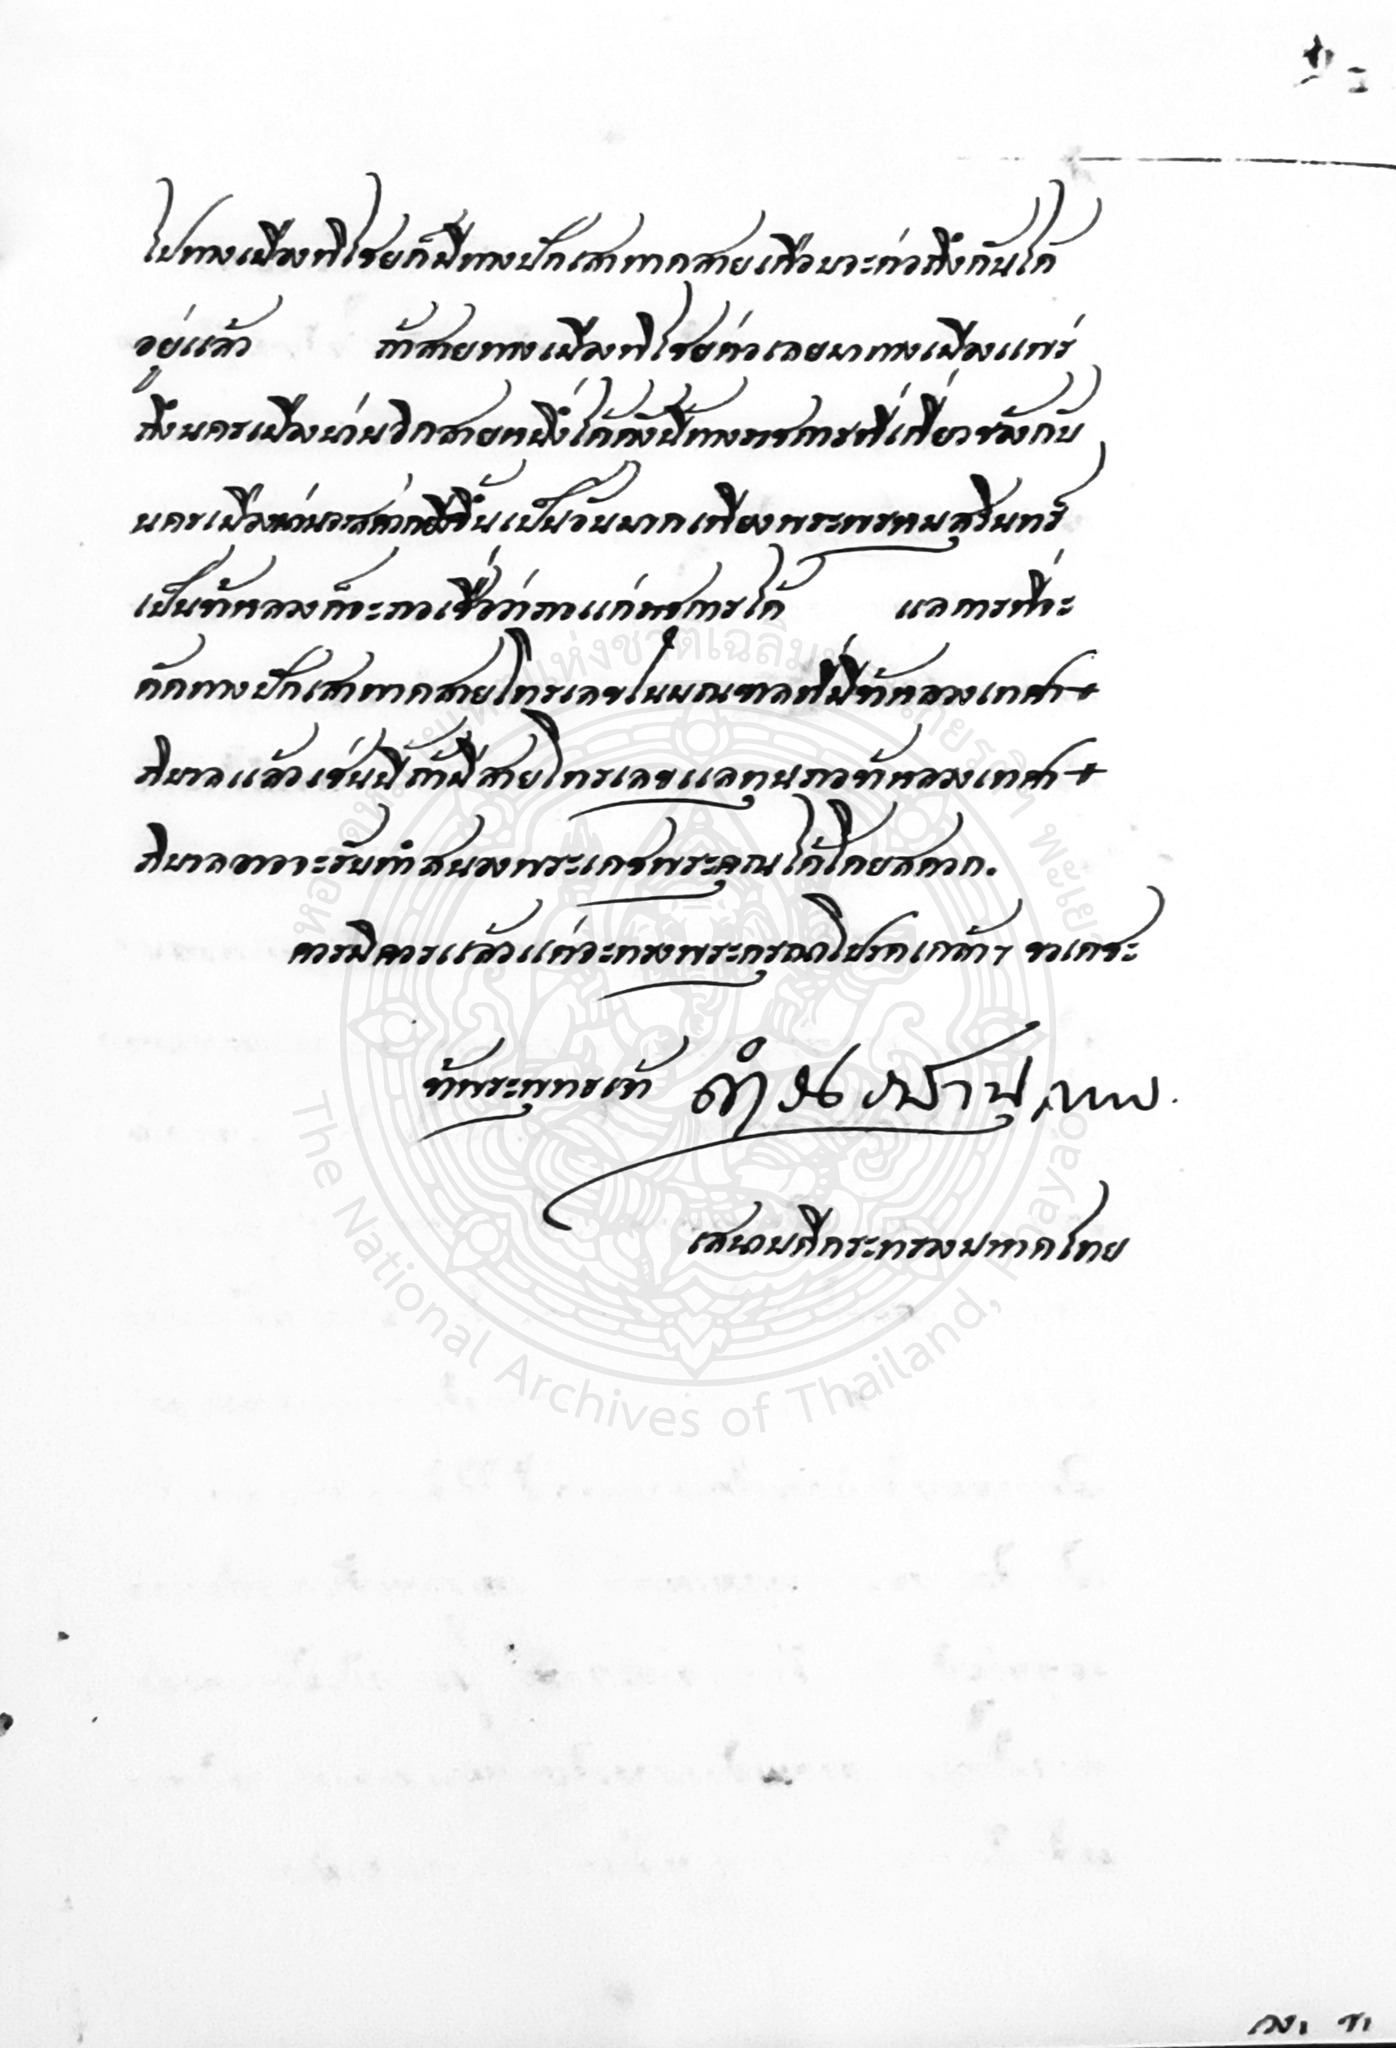 ไปทางเมืองพิไชยก็มีทางปักเสาพาดสายเกือบจะต่อถึงกันได้
อยู่แล้ว ถ้าสายทางเมืองพิไชยต่อเลยมาทางเมืองแพร่
ถึงนครเมืองน่านอีกสายหนึ่งได้ดังนี้ทางราชการที่เกี่ยวข้องกับ
นครเมืองน่านจะสดวกดีขึ้นเป็นอันมากเพียงพระพรหมสุรินทร์
เป็นข้าหลวงก็จะภอเชื่อว่าภอแก่ราชการได้ แลการที่จะ
คัดทางปักเสาพาดสายโทรเลขในมณฑลที่มีข้าหลวงเทศา
ภิบาลแล้วเช่นนี้ถ้ามีสายโทรเลขแลทุนภอข้าหลวงเทศา
ภิบาลอาจจะรับทำสนองพระเดชพระคุณได้โดยสดวก.
ควรมิควรแล้วแต่จะทรงพระกรุณาโปรดเกล้าฯ ขอเดชะ
ข้าพระพุทธเจ้า ดำรงราชานุภาพ.
เสนาบดีกระทรวงมหาดไทย
หอจดหมายเหตุแห่งชาติเฉลิมพระเกียรติฯ พะเยา
The National Archives of Thailand, Phayao